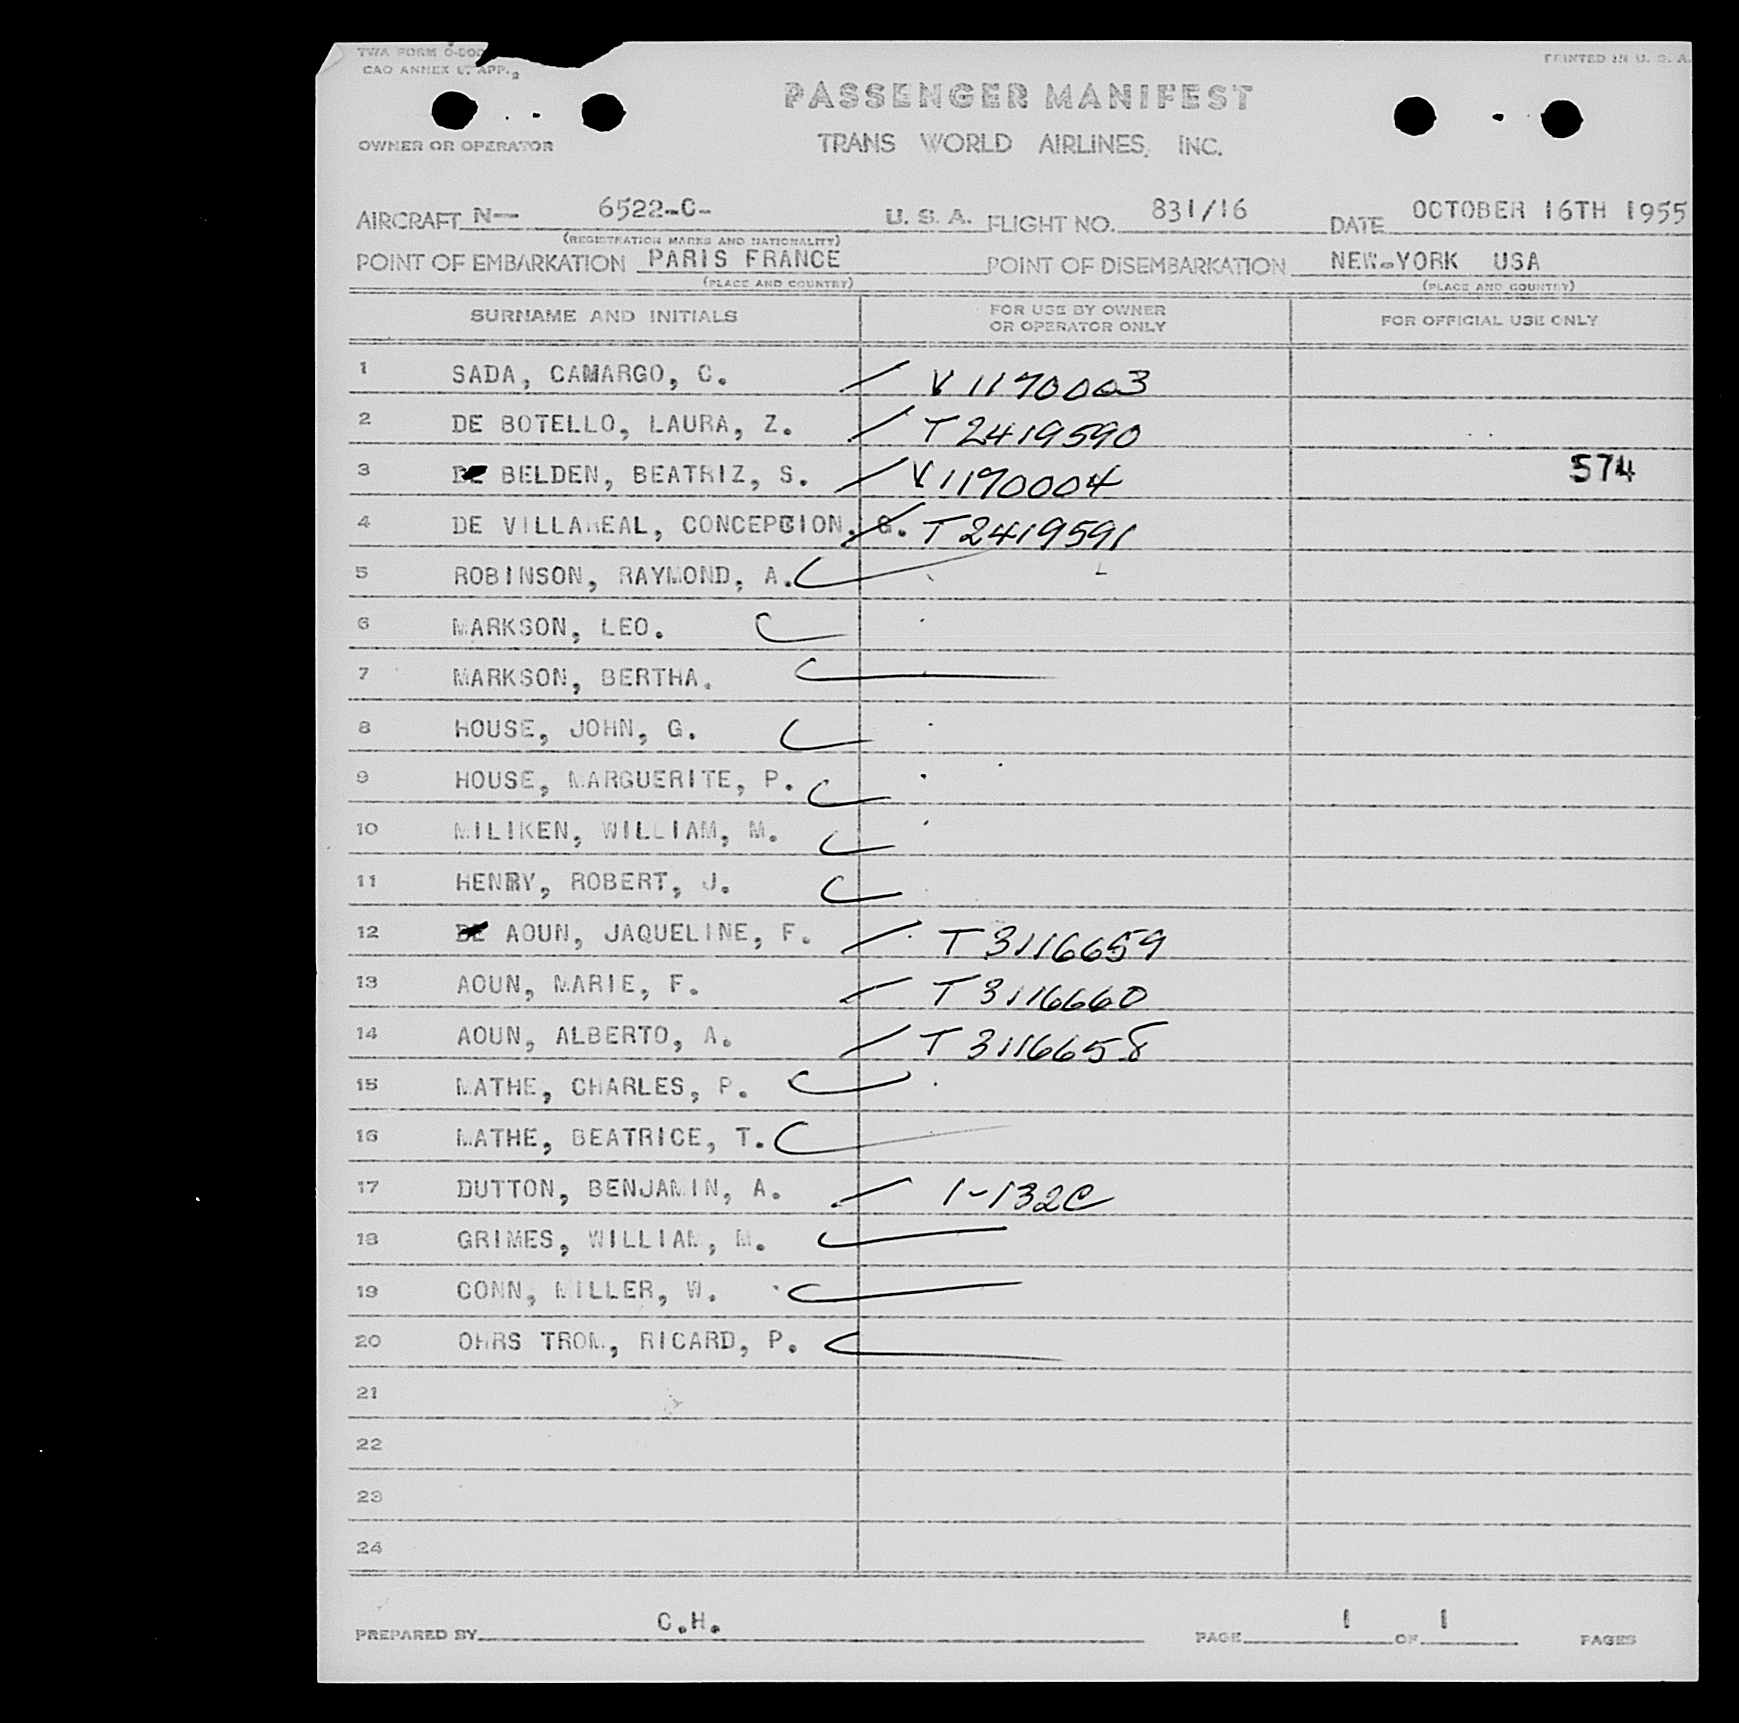 TWA FORM O-
CAO ANNEX
PRINTED IN U. S. A.
PASSENGER MANIFEST
OWNER OR OPERATOR
TRANS WORLD AIRLINES, INC.
AIRCRAFT N— 6522-C- U. S. A. FLIGHT NO. 831/16 DATE OCTOBER 16TH 1955
(REGISTRATION MARKS AND NATIONALITY)
POINT OF EMBARKATION PARIS FRANCE POINT OF DISEMBARKATION NEW-YORK USA
(PLACE AND COUNTRY) (PLACE AND COUNTRY)
SURNAME AND INITIALS FOR USE BY OWNER OR OPERATOR ONLY FOR OFFICIAL USE ONLY
1 SADA, CAMARGO, C. V1190003
2 DE BOTELLO, LAURA, Z. T2419590
3 BELDEN, BEATRIZ, S. V1190004 574
4 DE VILLAREAL, CONCEPCION, G. T2419591
5 ROBINSON, RAYMOND, A.
6 MARKSON, LEO.
7 MARKSON, BERTHA.
8 HOUSE, JOHN, G.
9 HOUSE, MARGUERITE, P.
10 MILIKEN, WILLIAM, M.
11 HENRY, ROBERT, J.
12 AOUN, JAQUELINE, F. T3116659
13 AOUN, MARIE, F. T3116660
14 AOUN, ALBERTO, A. T3116658
15 MATHE, CHARLES, P.
16 MATHE, BEATRICE, T.
17 DUTTON, BENJAMIN, A. 1-132C
18 GRIMES, WILLIAM, M.
19 CONN, MILLER, W.
20 OHRS TROM, RICARD, P.
21
22
23
24
PREPARED BY C.H. PAGE 1 OF 1 PAGES